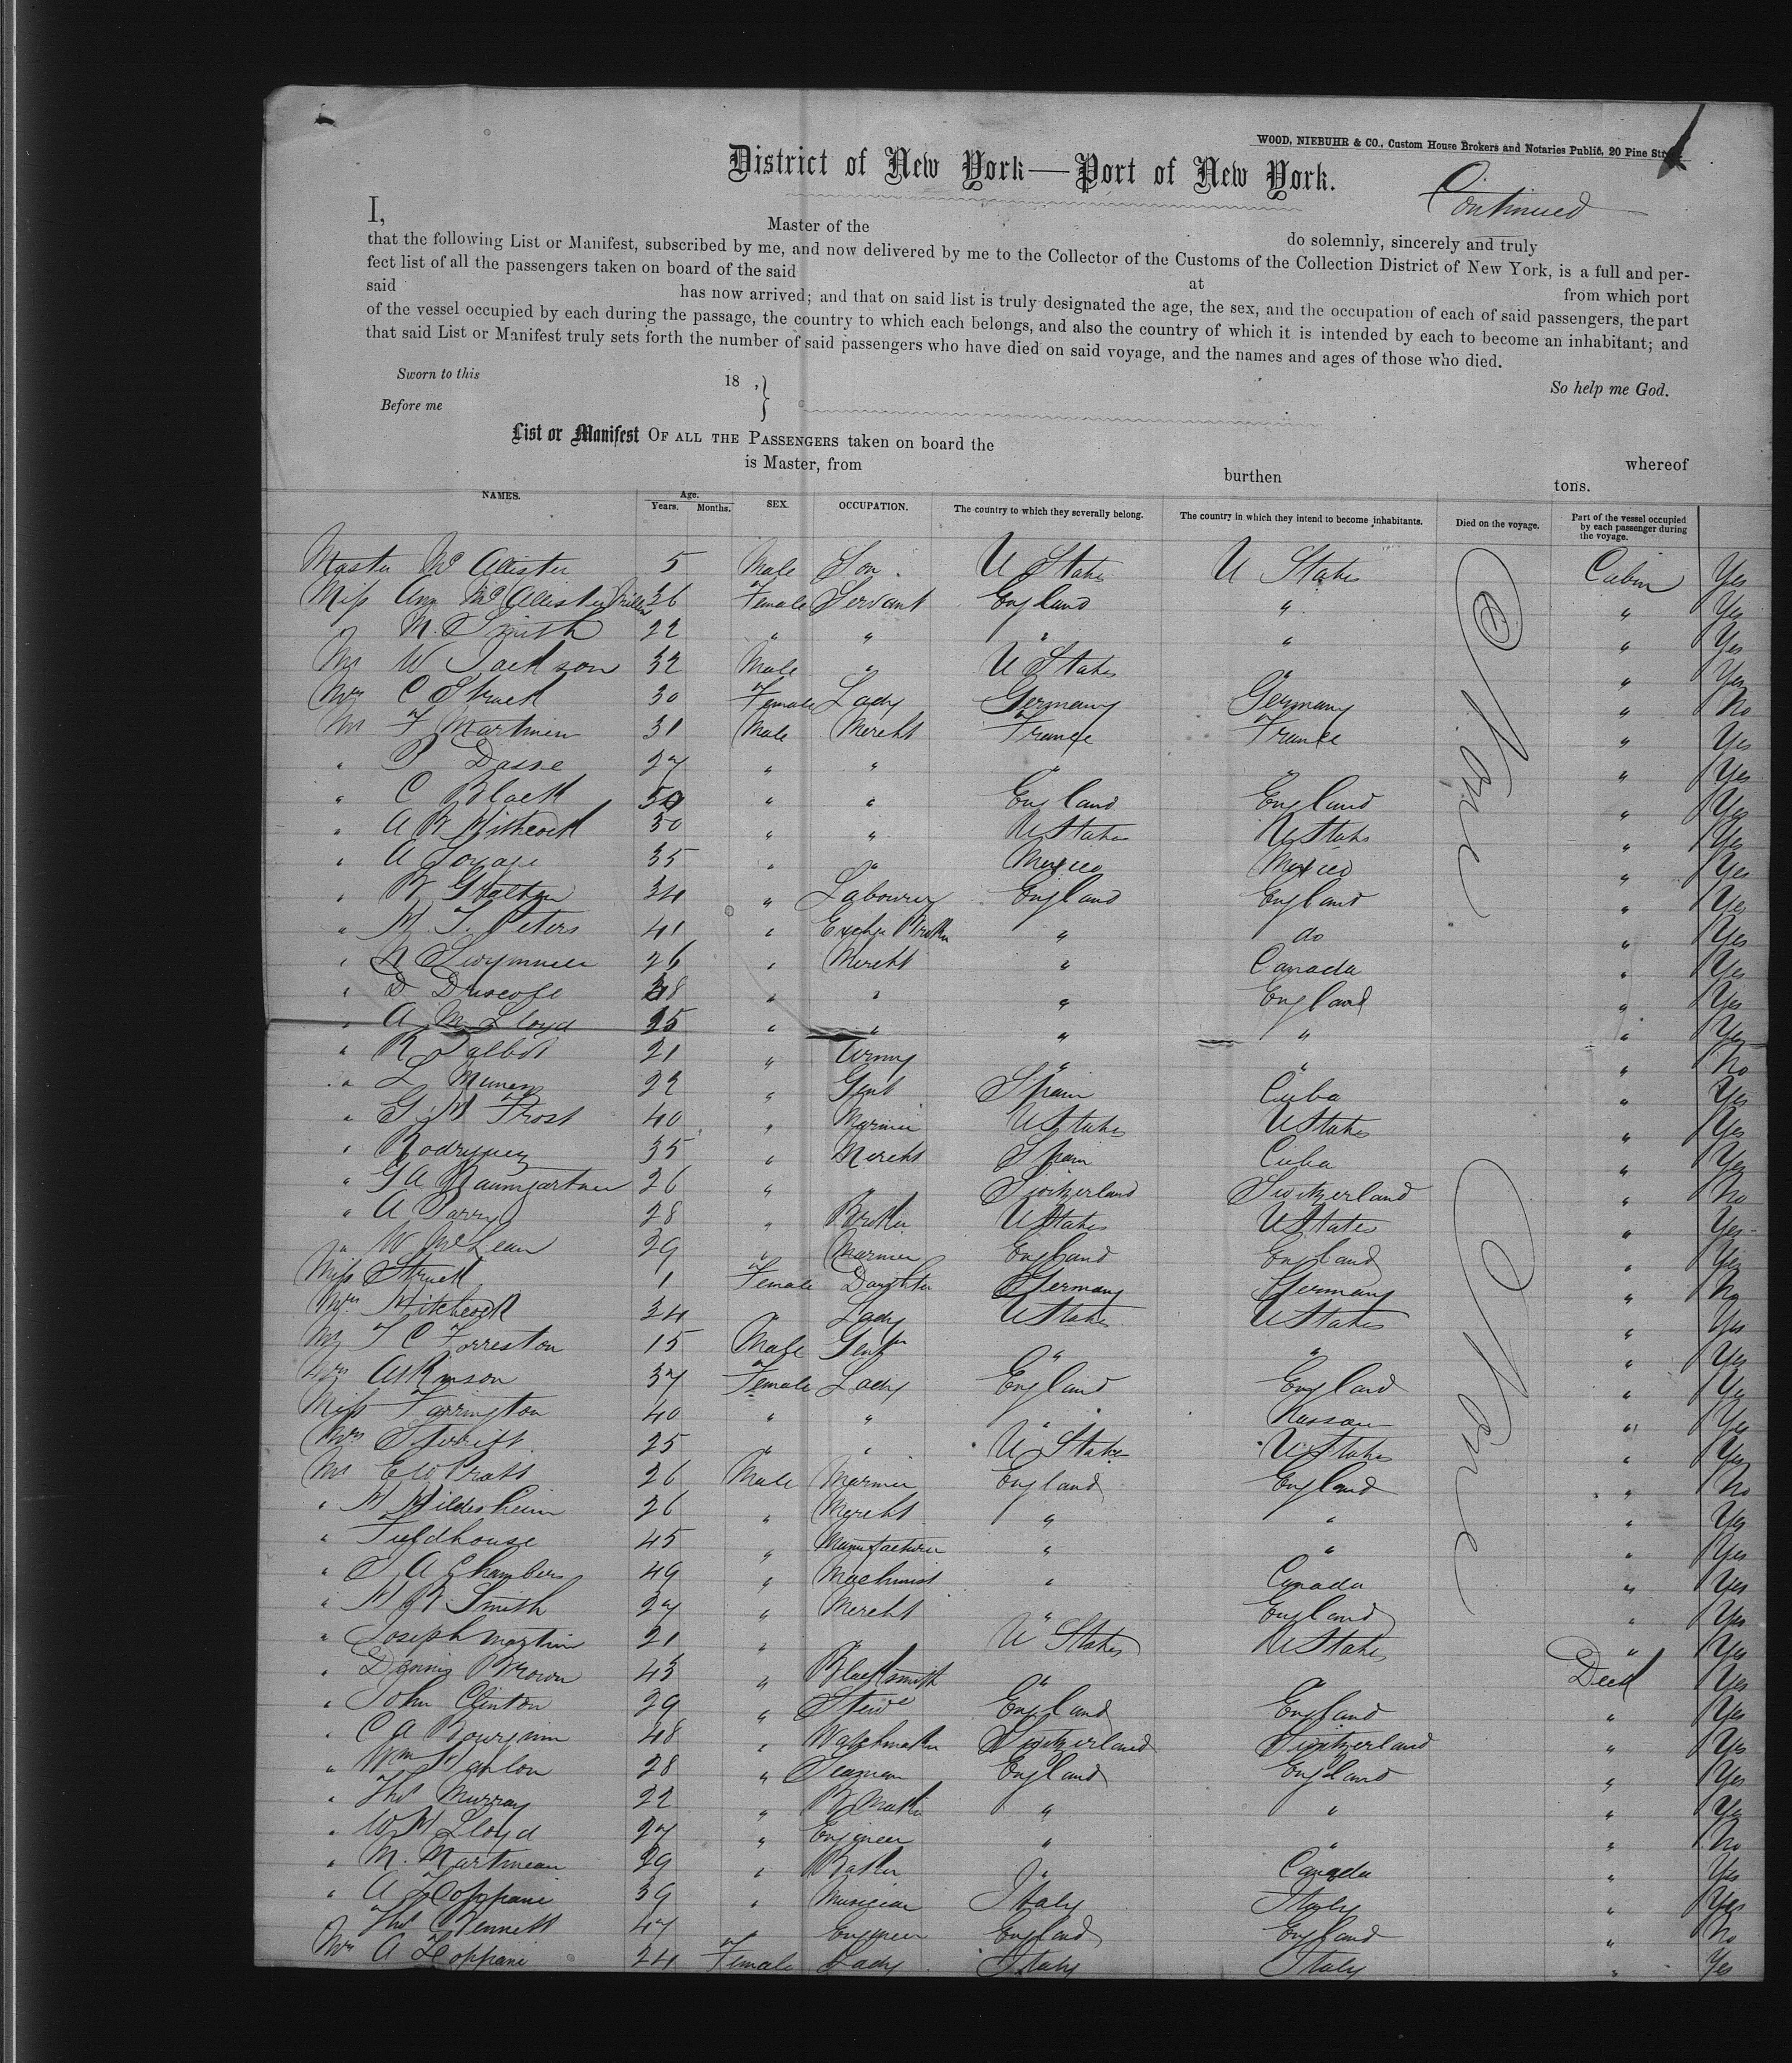 WOOD, NIEBUHR & CO., Custom House Brokers and Notaries Public, 20 Pine
District of New York—Port of New York.
Continued
I, Master of the do solemnly, sincerely and truly
that the following List or Manifest, subscribed by me, and now delivered by me to the Collector of the Customs of the Collection District of New York, is a full and per-
fect list of all the passengers taken on board of the said at from which port
said has now arrived; and that on said list is truly designated the age, the sex, and the occupation of each of said passengers, the part
of the vessel occupied by each during the passage, the country to which each belongs, and also the country of which it is intended by each to become an inhabitant; and
that said List or Manifest truly sets forth the number of said passengers who have died on said voyage, and the names and ages of those who died.
Sworn to this 18 , } So help me God.
Before me
List or Manifest OF ALL THE PASSENGERS taken on board the whereof
is Master, from burthen tons.
NAMES. Age. Years. Months. SEX. OCCUPATION. The country to which they severally belong. The country in which they intend to become inhabitants. Died on the voyage. Part of the vessel occupied by each passenger during the voyage.
Master McAllister 5 Male Son U States U States Cabin Yes
Miss Ann McAllister 36 Female Servant England " " Yes
" M. Smith 22 " " " " " Yes
Mr W Jackson 32 Male " U States " " Yes
Mrs C Struck 30 Female Lady Germany Germany " No
Mr F Martinein 31 Male Mercht France France " Yes
" P Dasse 27 " " " " " Yes
" C Black 50 " " England England " Yes
" A R Hithcock 30 " " U States U States " Yes
" A 35 " " Mexico Mexico " Yes
" 34 " Labourer England England " Yes
" M. T. Peters 41 " Exchge Broker " do " Yes
" 26 " Mercht " Canada " Yes
" D Driscole 38 " " " England " Yes
" A M Lloyd 25 " " " " " Yes
" R Talbot 21 " Army " " " No
" L 22 " Gent Spain Cuba " Yes
" G M Frost 40 " Mariner U States U States " Yes
" Rodryuez 35 " Mercht Spain Cuba " Yes
" G A Baumgartner 26 " " Switzerland Switzerland " No
" A Parry 28 " Broker U States U States " Yes
" W McLean 29 " Mariner England England " Yes
Miss Struck 1 Female Daughter Germany Germany " No
Mrs Hitchcock 24 " Lady U States U States " Yes
Mr T C Forreston 15 Male Gentn " " " Yes
Mrs Atkinson 37 Female Lady England England " Yes
Miss Farrington 40 " " " Nassau " Yes
Mrs 25 " " U States U States " Yes
Mr E W Pratt 26 Male Mariner England England " No
" H Hildesheim 26 " Mercht " " " Yes
" Fieldhouse 45 " Manufacturer " " " Yes
" S A Chambers 49 " Machinist " Canada " Yes
" H R Smith 27 " Mercht " England " Yes
" Joseph Martin 21 " " U States U States " Yes
" Dennis Brown 43 " Blacksmith " " Deck Yes
" John Clinton 29 " Stewd England England " Yes
" C A Bourquin 48 " Watchmaker Switzerland Switzerland " Yes
" Wm Hanlon 28 " Seaman England England " Yes
" Thos Murray 22 " B Maker " " " Yes
" W H Lloyd 27 " Engineer " " " No
" M. Martineau 29 " Baker " Canada " Yes
" A Zoppani 39 " Musician Italy Italy " Yes
" Thos Bennett 47 " Engineer England England " No
Mrs A Zoppani 24 Female Lady Italy Italy " Yes